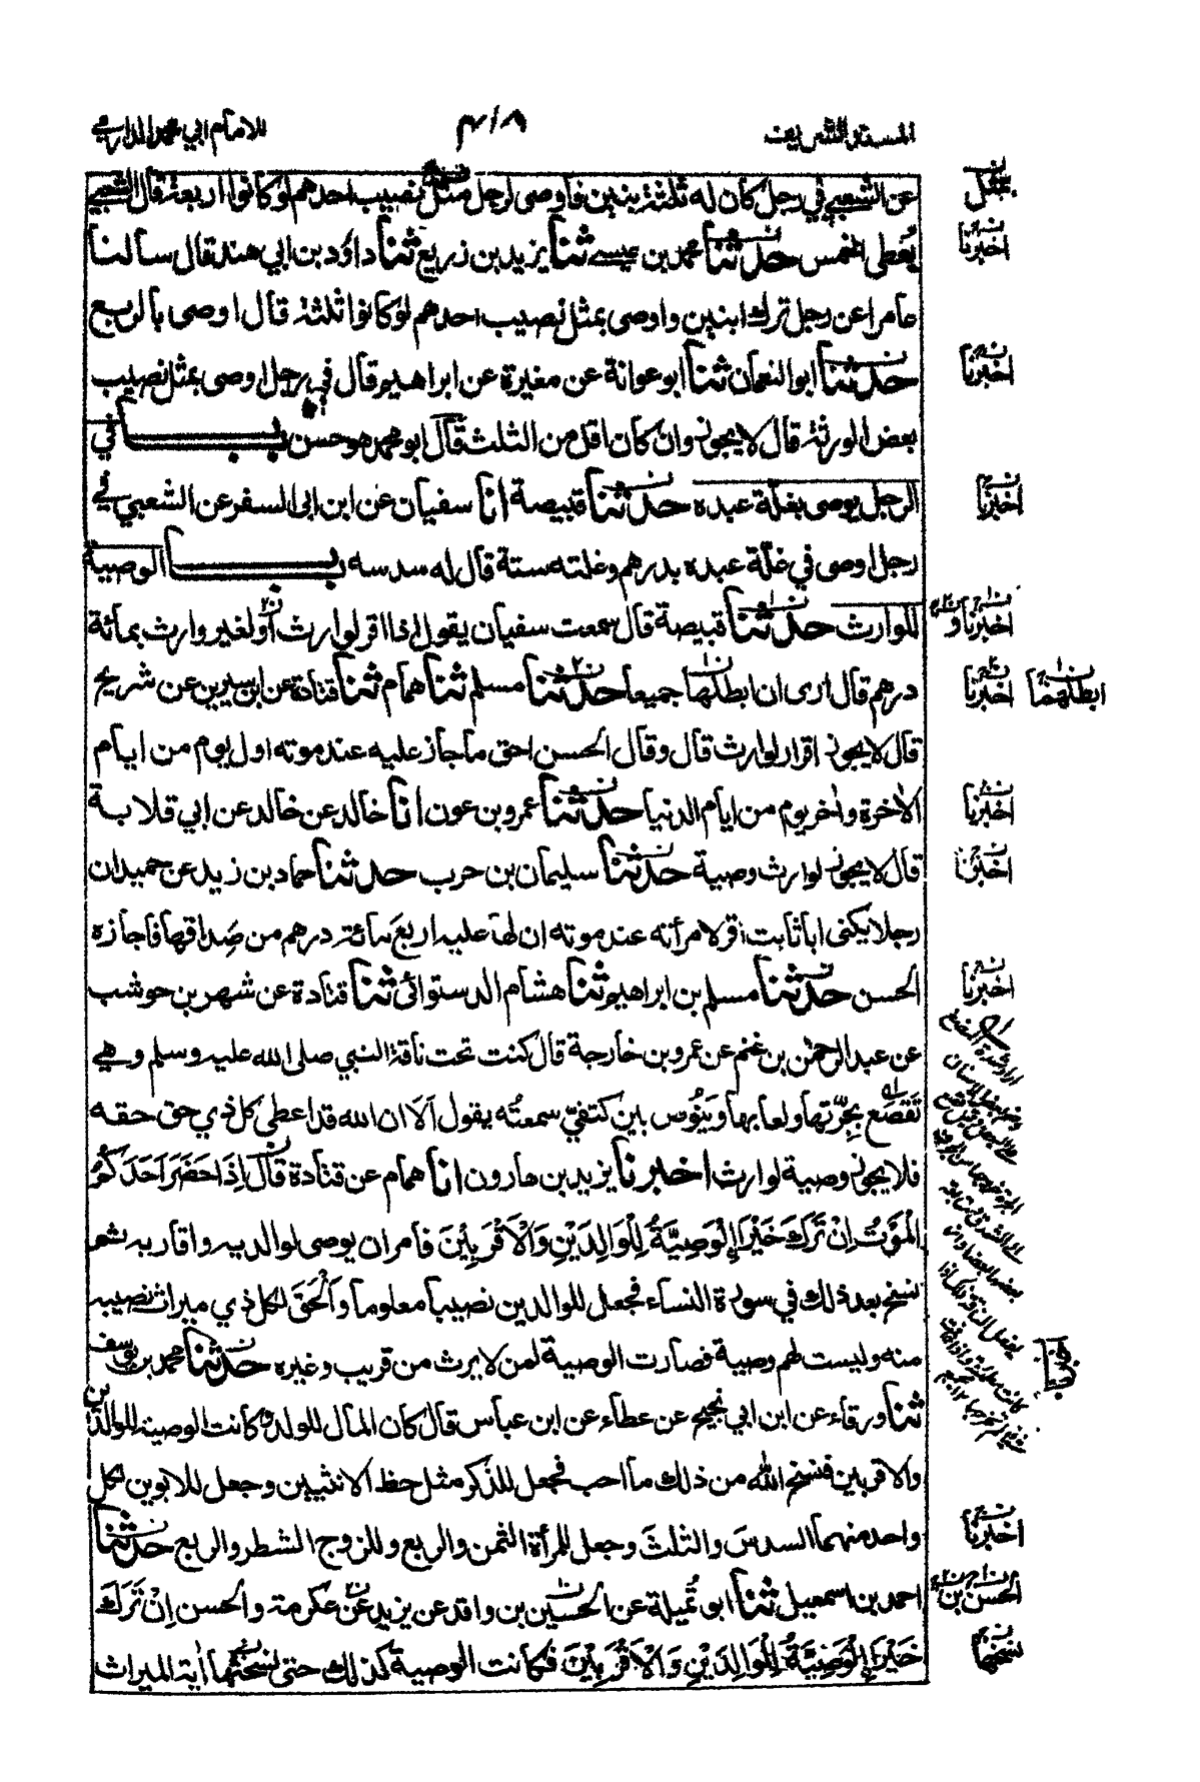 المسند الشريف
٤١٨
للامام ابي محمد الدارمي
عن الشعبي في رجل كان له ثلثة بنين فاوصى لرجل مثل نصيب احدهم لوكانوا اربعة قال الشعبي
يُعطى الخمس حدثنا محمد بن عيسى ثنا يزيد بن زريع ثنا داؤد بن ابي هند قال سألنا
عامرا عن رجل ترك ابنين واوصى بمثل نصيب احدهم لوكانوا ثلثة قال اوصى بالربع
حدثنا ابو النعمان ثنا ابو عوانة عن مغيرة عن ابراهيم قال في رجل اوصى بمثل نصيب
بعض الورثة قال لا يجوز وان كان اقل من الثلث قال ابو محمد هو حسن باب في
الرجل يوصى بغلة عبده حدثنا قبيصة انا سفيان عن ابن ابى السفر عن الشعبي في
رجل اوصى في غلّة عبده بدرهم وغلته ستة قال له سدسه باب الوصية
للوارث حدثنا قبيصة قال سمعت سفيان يقول اذا اقر لوارث أولغير وارث بمائة
درهم قال ارى ان ابطلها جميعا حدثنا مسلم ثنا همام ثنا قتادة عن ابن سيرين عن شريح
قال لا يجوز اقرار لوارث قال وقال الحسن احق ماجاز عليه عند موته اول يوم من ايام
الاخرة واخر يوم من ايام الدنيا حدثنا عمرو بن عون انا خالد عن خالد عن ابي قلابة
قال لا يجوز لوارث وصية حدثنا سليمان بن حرب حدثنا حماد بن زيد عن حميد ان
رجلا يكنى ابا ثابت اقر لامرأته عند موته ان لها عليه اربع مائة درهم من صِداقها فاجازه
الحسن حدثنا مسلم بن ابراهيم ثنا هشام الدستوائى ثنا قتادة عن شهر بن حوشب
عن عبد الرحمن بن غنم عن عمرو بن خارجة قال كنت تحت ناقة النبي صلى الله عليه وسلم وهي
تَقصَع بِجِرّتها ولعابها ويَنُوس بين كتفيّ سمعتُه يقول اَلا ان الله قد اعطى كل ذي حق حقه
فلا يجوز وصية لوارث اخبرنا يزيد بن هارون انا همام عن قتادة قال اِذَا حَضَرَ اَحَدَكُمُ
الْمَوْتُ اِنْ تَرَكَ خَيْرًا اِلْوَصِيَّةُ لِلْوَالِدَيْنِ وَالْاَقْرَبِيْنَ فامر ان يوصى لوالديه واقاربه ثم
نسخ بعد ذلك في سورة النساء فجعل للوالدين نصيبا معلوما وَاَلْحَقَ لكل ذي ميراث نصيبه
منه وليست لهم وصية فصارت الوصية لمن لا يرث من قريب وغيره حدثنا محمد بن يوسف
ثنا ورقاء عن ابن ابي نجيح عن عطاء عن ابن عباس قال كان المال للولد وكانت الوصية للوالدين
والاقربين فنسخ الله من ذلك ما احب فجعل للذكر مثل حظ الانثيين وجعل للابوين لكل
واحد منهما السدسَ والثلثَ وجعل للمرأة الثمن والربع وللزوج الشطر والربع حدثنا
احمد بن اسمعيل ثنا ابو تُميلة عن الحسين بن واقد عن يزيد عن عكرمة والحسن اِنْ تَرَكَ
خَيْرًا اِلْوَصِيَّةُ لِلْوَالِدَيْنِ وَالْاَقْرَبِيْنَ فكانت الوصية كذلك حتى نسختها اية الميراث
بمثل
اخبرنا
اخبرنا
اخبرنا
اخبرنا و
اخبرنا
ابطلهما
اخبرنا
اخبرنا
اخبرنا
اخبرنا
اخبرنا
الحسن بن
نسخها